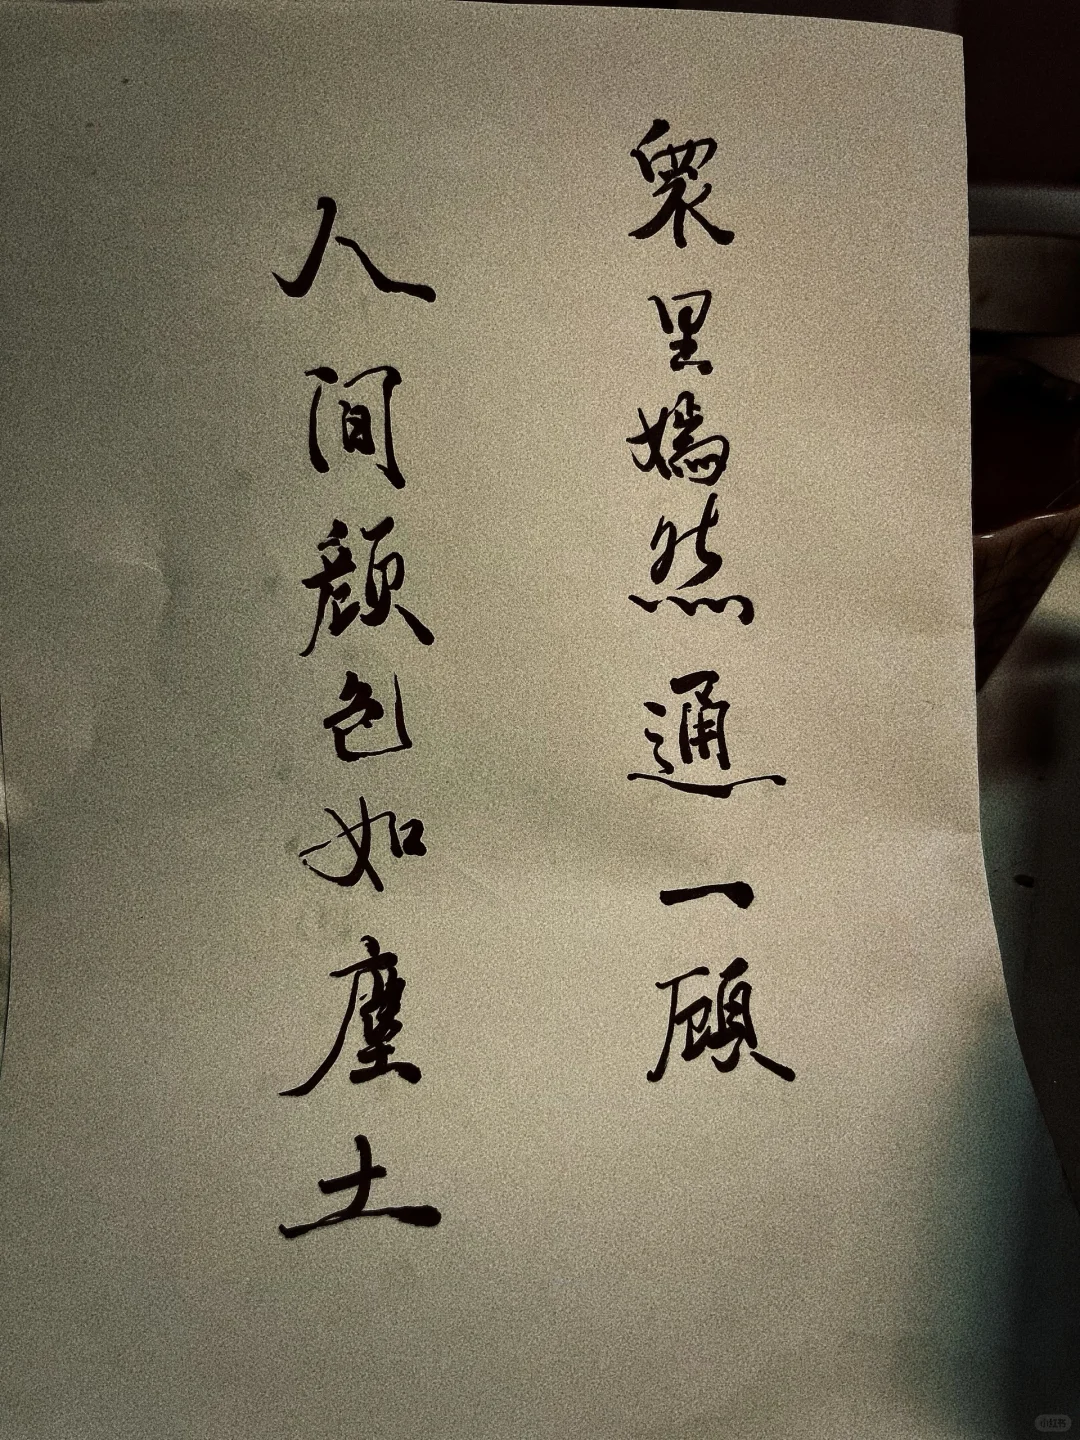 眾里嫣然通一顧
人间顏色如塵土
小红书